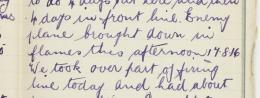 to do 4 days out here and then
4 days in front line. Enemy
plane brought down in
flames this afternoon 14 8 16
We took over part of firing
line today and had about